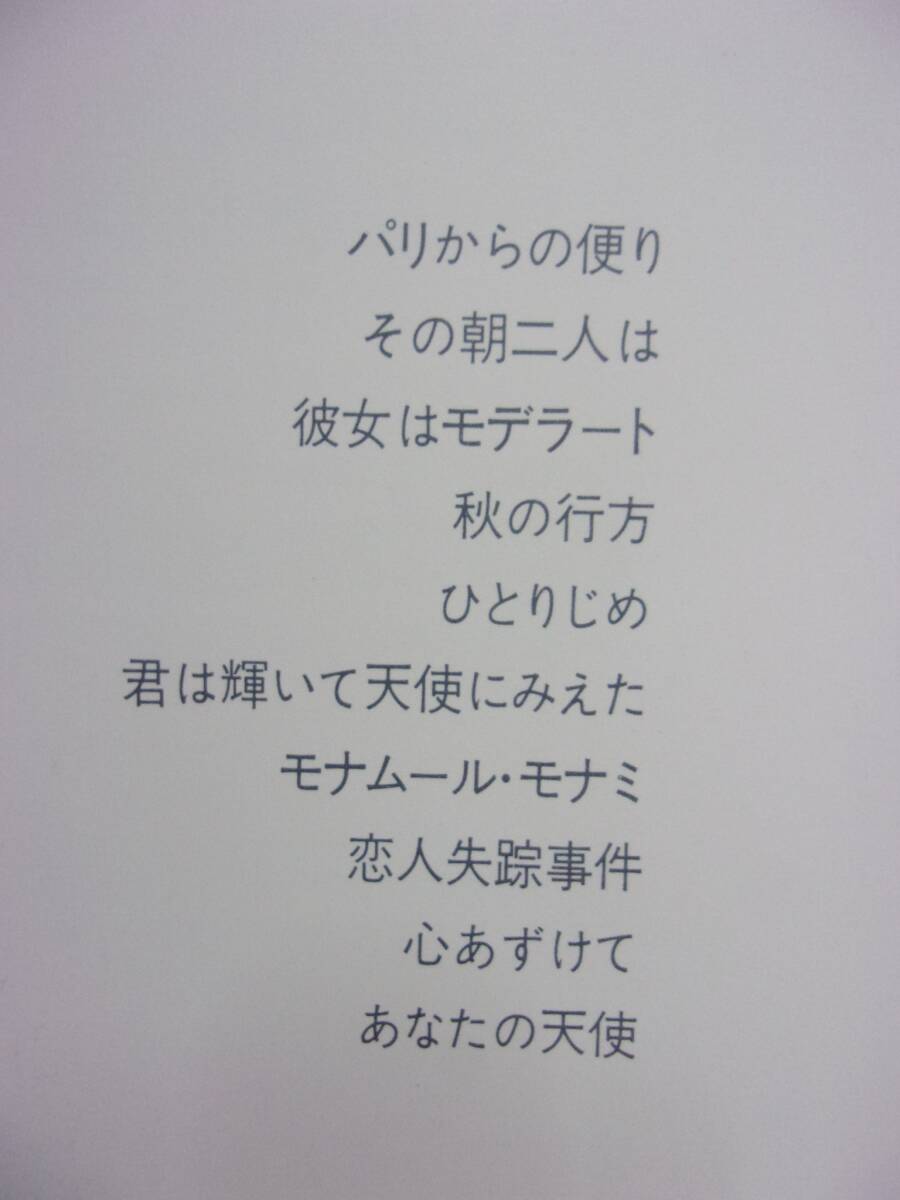 パリからの便り
その朝二人は
彼女はモデラート
秋の行方
ひとりじめ
君は輝いて天使にみえた
モナムール・モナミ
恋人失踪事件
心あずけて
あなたの天使